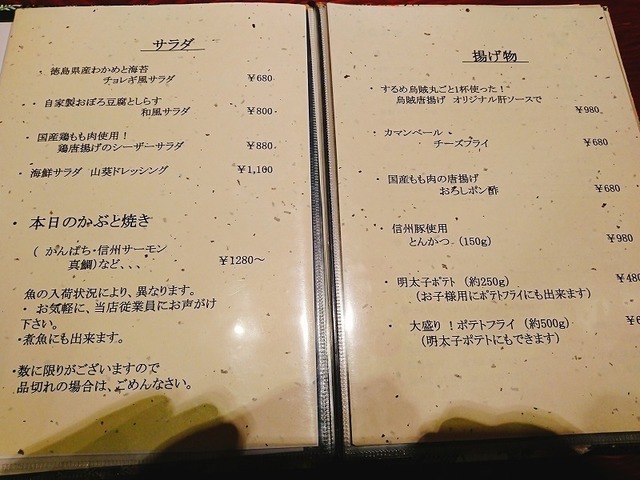 サラダ
・徳島県産わかめと海苔
チョレギ風サラダ ￥680
・自家製おぼろ豆腐としらす
和風サラダ ￥800
・国産鶏もも肉使用！
鶏唐揚げのシーザーサラダ ￥880
・海鮮サラダ 山葵ドレッシング ￥1,100
・本日のかぶと焼き
（ かんぱち・信州サーモン
真鯛）など、、、 ￥1280～
魚の入荷状況により、異なります。
・お気軽に、当店従業員にお声がけ
下さい。
・煮魚にも出来ます。
・数に限りがございますので
品切れの場合は、ごめんなさい。
揚げ物
・するめ烏賊丸ごと1杯使った！
烏賊唐揚げ オリジナル肝ソースで ￥980
・カマンベール
チーズフライ ￥680
・国産もも肉の唐揚げ
おろしポン酢 ￥680
・信州豚使用
とんかつ （150g） ￥980
・明太子ポテト （約250g） ￥480
（お子様用にポテトフライにも出来ます）
・大盛り！ポテトフライ （約500g）
（明太子ポテトにもできます）